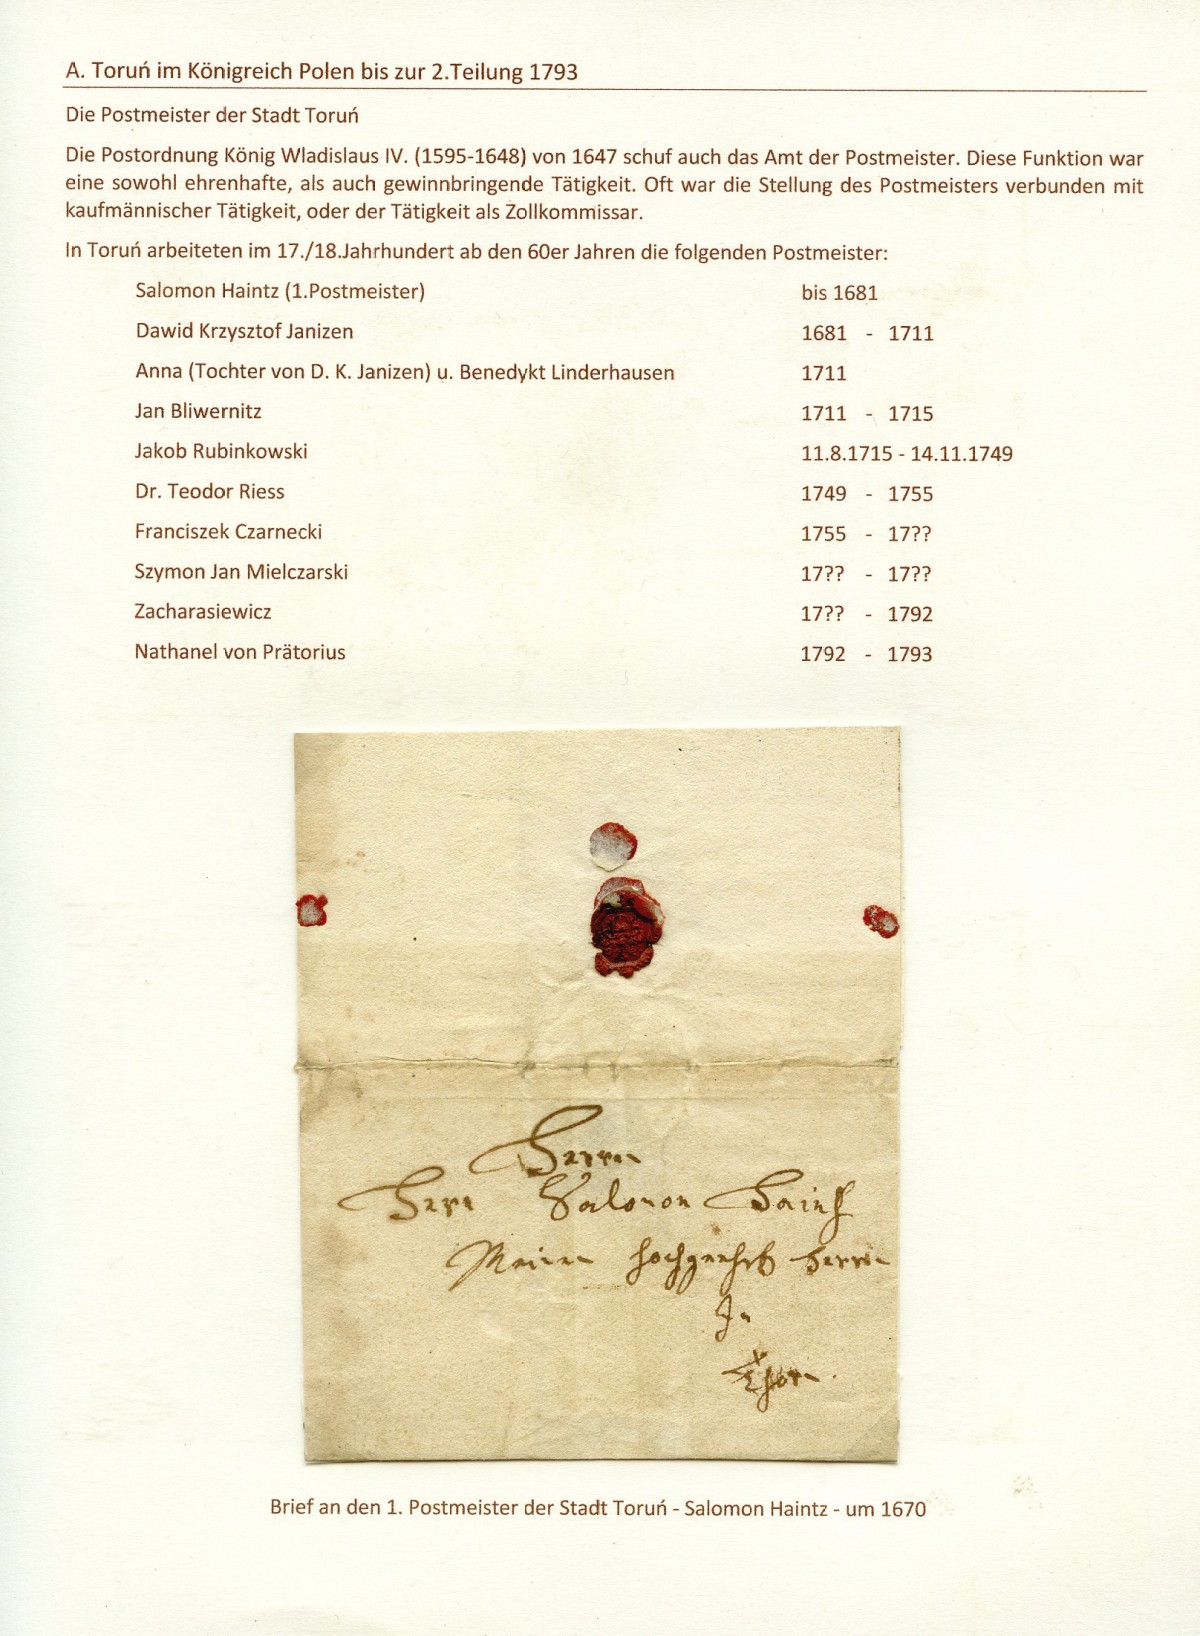 A. Toruń im Königreich Polen bis zur 2.Teilung 1793
Die Postmeister der Stadt Toruń
Die Postordnung König Wladislaus IV. (1595-1648) von 1647 schuf auch das Amt der Postmeister. Diese Funktion war
eine sowohl ehrenhafte, als auch gewinnbringende Tätigkeit. Oft war die Stellung des Postmeisters verbunden mit
kaufmännischer Tätigkeit, oder der Tätigkeit als Zollkommissar.
In Toruń arbeiteten im 17./18.Jahrhundert ab den 60er Jahren die folgenden Postmeister:
Salomon Haintz (1.Postmeister) bis 1681
Dawid Krzysztof Janizen 1681 - 1711
Anna (Tochter von D. K. Janizen) u. Benedykt Linderhausen 1711
Jan Bliwernitz 1711 - 1715
Jakob Rubinkowski 11.8.1715 - 14.11.1749
Dr. Teodor Riess 1749 - 1755
Franciszek Czarnecki 1755 - 17??
Szymon Jan Mielczarski 17?? - 17??
Zacharasiewicz 17?? - 1792
Nathanel von Prätorius 1792 - 1793
Herrn
Herrn Salomon Haintz
Meinen hochgeehrt Herrn
In
Thorn
Brief an den 1. Postmeister der Stadt Toruń - Salomon Haintz - um 1670